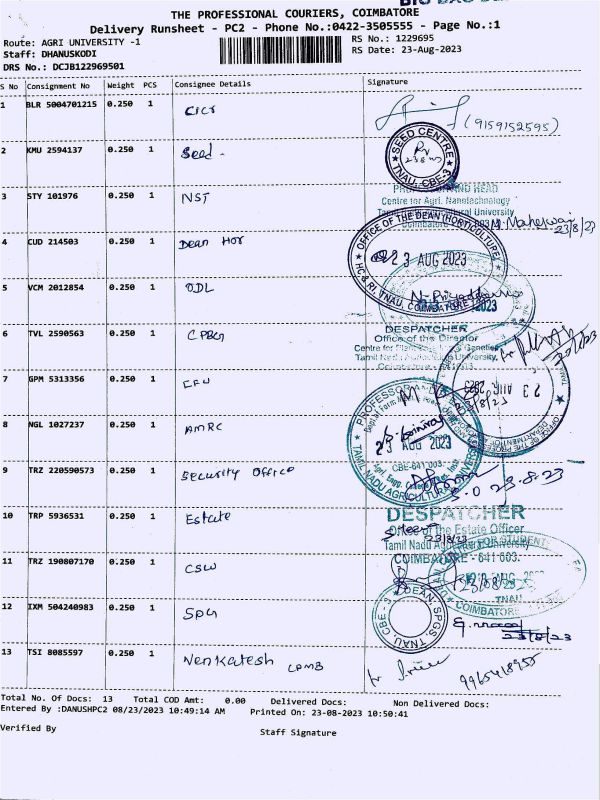 THE PROFESSIONAL COURIERS, COIMBATORE
Delivery Runsheet - PC2 - Phone No.:0422-3505555 - Page No.:1
Route: AGRI UNIVERSITY -1
RS No.: 1229695
Staff: DHANUSKODI
RS Date: 23-Aug-2023
DRS No.: DCJB122969501
S No Consignment No Weight PCS Consignee Details Signature
1 BLR 5004701215 0.250 1 CICR
(9159152595)
2 KMU 2594137 0.250 1 Seed -
SEED CENTRE
TNAU, CBE-3
3 STY 101976 0.250 1 NST
Centre for Agri. Nanotechnology
M. Maheswari
23/8/23
4 CUD 214503 0.250 1 Dean Hor
OFFICE OF THE DEAN (HORTICULTURE)
23 AUG 2023
HC & RI, TNAU, COIMBATORE
5 VCM 2012854 0.250 1 ODL
N. Priyadharshini
6 TVL 2590563 0.250 1 CPBG
DESPATCHER
Office of the Director
Tamil Nadu Agricultural University,
7 GPM 5313356 0.250 1
8 NGL 1027237 0.250 1 AMRC
23 AUG 2023
CBE-641 003.
TAMIL NADU AGRICULTURAL UNIVERSITY
9 TRZ 220590573 0.250 1 Security Office
23.8.23
10 TRP 5936531 0.250 1 Estate
DESPATCHER
Office of the Estate Officer
Tamil Nadu Agricultural University
COIMBATORE - 641 003.
23/8/23
11 TRZ 190807170 0.250 1 CSW
TNAU
COIMBATORE
12 IXM 504240983 0.250 1 SPG
DEAN, SPGS, TNAU, CBE - 3
23/8/23
13 TSI 8085597 0.250 1 Venkatesh CPMB
9965418955
Total No. Of Docs: 13 Total COD Amt: 0.00 Delivered Docs: Non Delivered Docs:
Entered By :DANUSHPC2 08/23/2023 10:49:14 AM Printed On: 23-08-2023 10:50:41
Verified By
Staff Signature